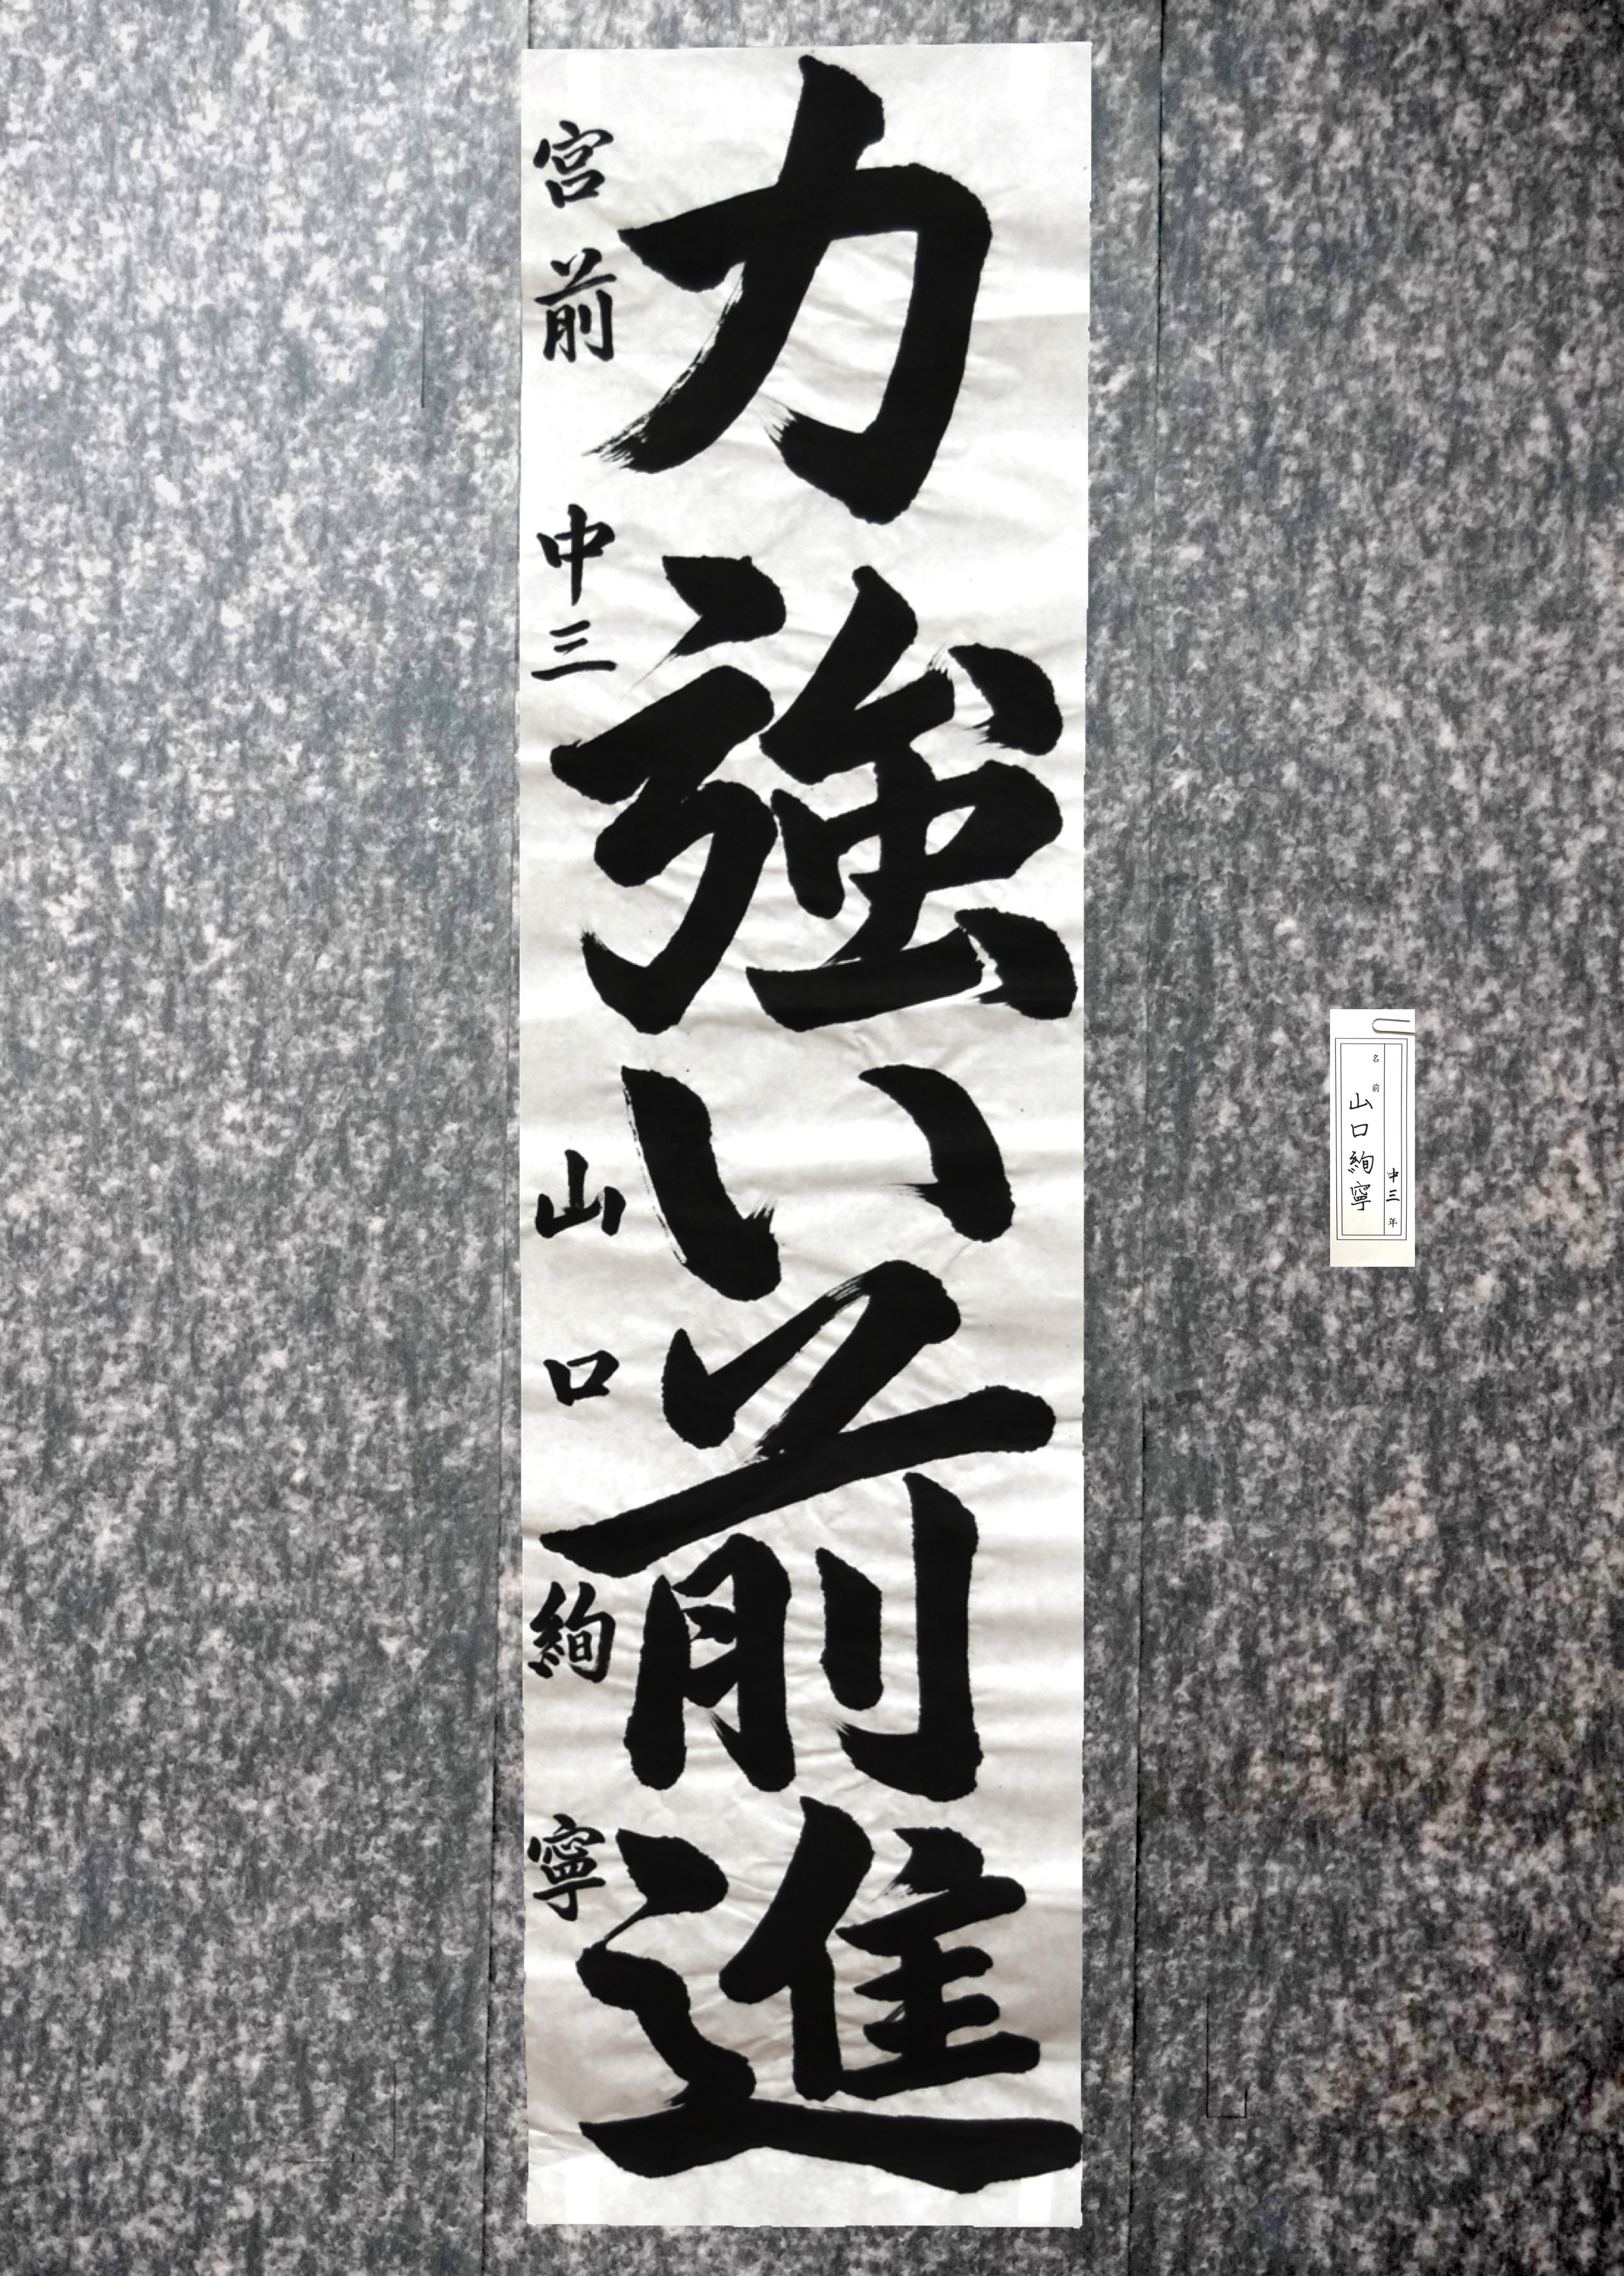 力強い前進
宮前 中三 山口 絢寧
中三年
名前 山口絢寧